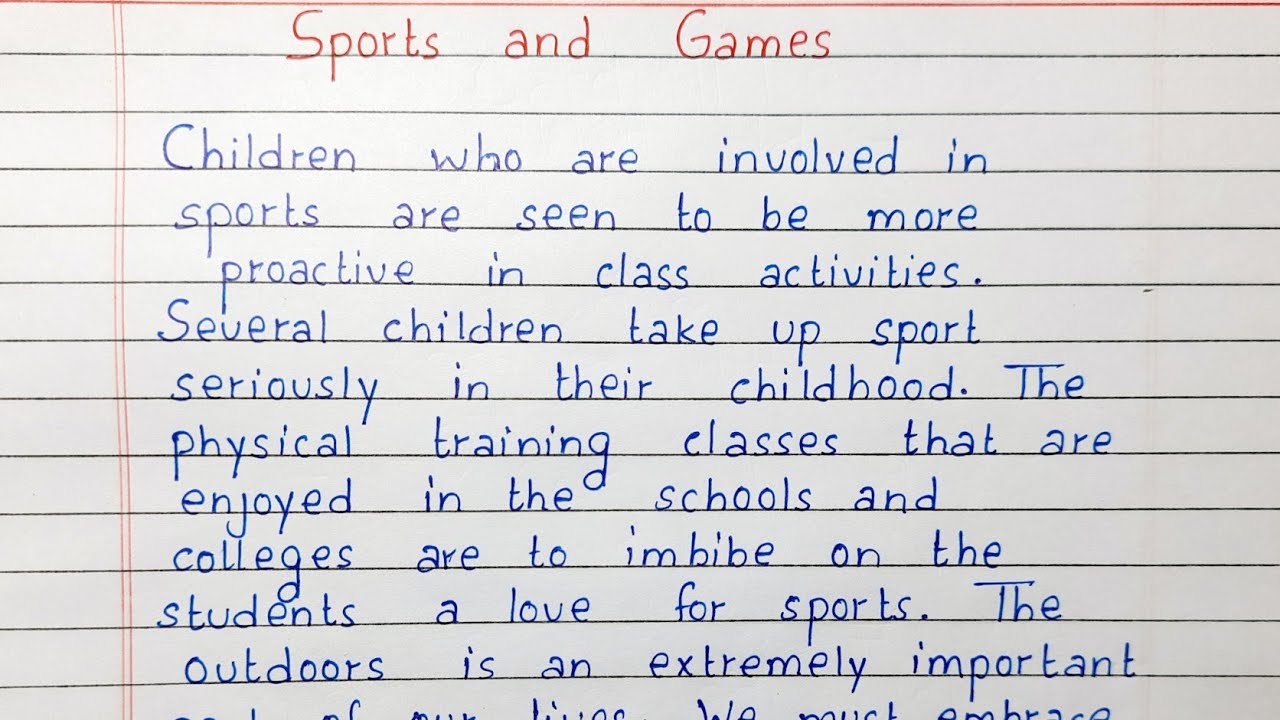 Sports and Games
Children who are involved in
sports are seen to be more
proactive in class activities.
Several children take up sport
seriously in their childhood. The
physical training classes that are
enjoyed in the schools and
colleges are to imbibe on the
students a love for sports. The
outdoors is an extremely important
part of our lives. We must embrace